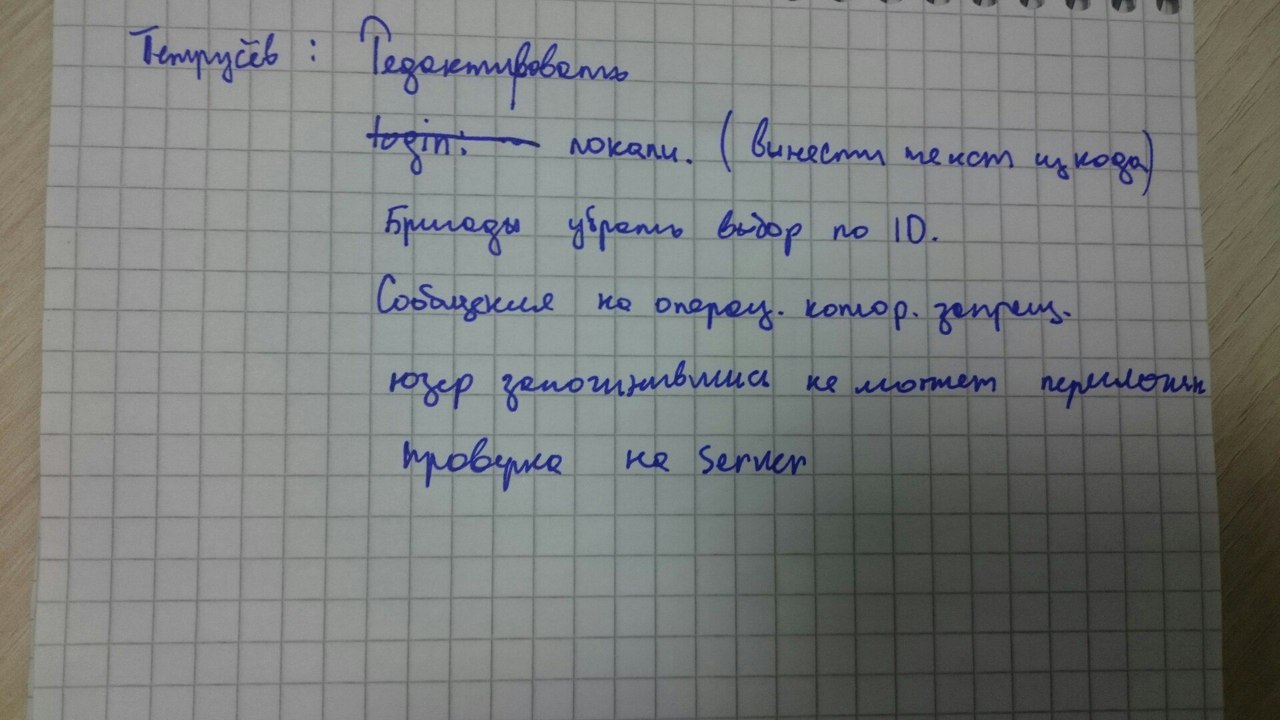 Петрусёв : Редактировать
login: локали. (винести текст из кода)
Бригады убрать выбор по ID.
Сообщения на операц. котор. запрещ.
юзер залогинывшись не может
проверка на Server